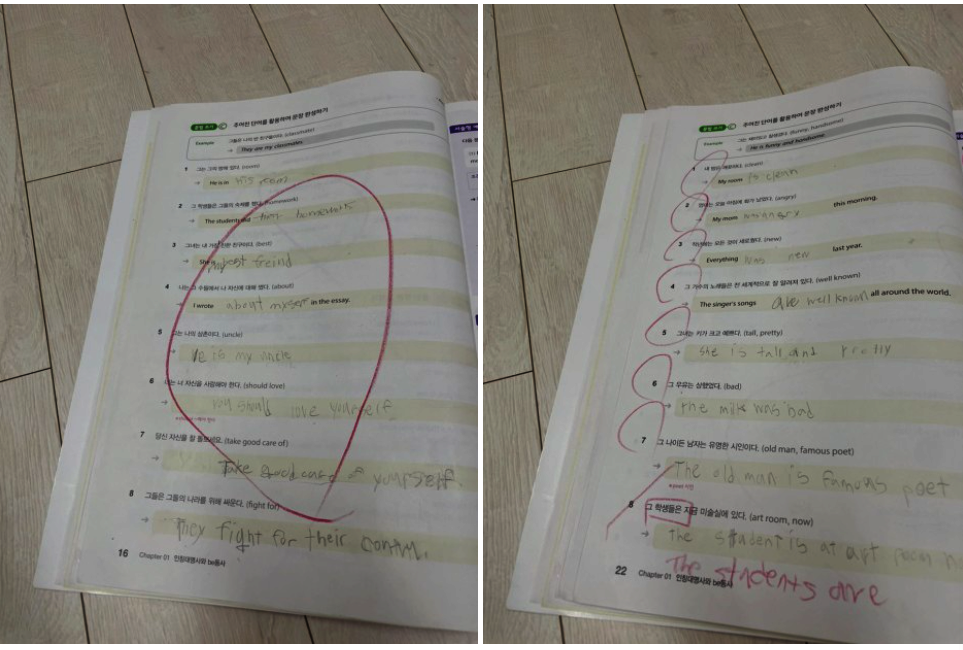 문법 쓰기 주어진 단어를 활용하여 문장 완성하기
Example 그들은 나의 반 친구들이다. (classmate)
→ They are my classmates.
1 그는 그의 방에 있다. (room)
→ He is in his room
2 그 학생들은 그들의 숙제를 했다. (homework)
→ The students did their homework
3 그녀는 내 가장 친한 친구이다. (best)
→ She is my best freind
4 나는 그 수필에서 나 자신에 대해 썼다. (about)
→ I wrote about myself in the essay.
5 그는 나의 삼촌이다. (uncle)
→ He is my uncle
6 너는 너 자신을 사랑해야 한다. (should love)
→ should love yourself
7 당신 자신을 잘 돌보세요. (take good care of)
→ Take good care of yourself.
8 그들은 그들의 나라를 위해 싸운다. (fight for)
→ They fight for their
16 Chapter 01 인칭대명사와 be동사
문법 쓰기 주어진 단어를 활용하여 문장 완성하기
Example 그는 재미있고 잘생겼다. (funny, handsome)
→ He is funny and handsome.
1 내 방은 깨끗하다. (clean)
→ My room is clean
2 엄마는 오늘 아침에 화가 났었다. (angry)
→ My mom was angry this morning.
3 작년에는 모든 것이 새로웠다. (new)
→ Everything was new last year.
4 그 가수의 노래들은 전 세계적으로 잘 알려져 있다. (well known)
→ The singer's songs are well known all around the world.
5 그녀는 키가 크고 예쁘다. (tall, pretty)
→ She is tall and pretty
6 그 우유는 상했었다. (bad)
→ The milk was bad
7 그 나이든 남자는 유명한 시인이다. (old man, famous poet)
→ The old man is famous poet
8 그 학생들은 지금 미술실에 있다. (art room, now)
→ the student is at art room
The students are
22 Chapter 01 인칭대명사와 be동사